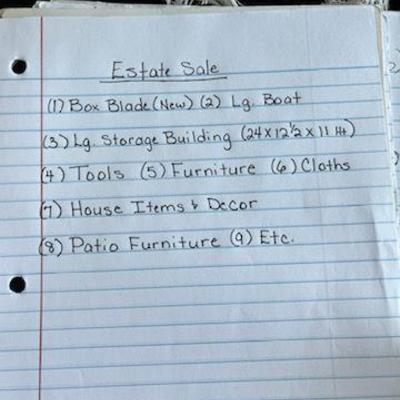 Estate Sale
(1) Box Blade (New) (2) Lg. Boat
(3) Lg. Storage Building (24 x 12 1/2 x 11 Ht)
(4) Tools (5) Furniture (6) Cloths
(7) House Items & Decor
(8) Patio Furniture (9) Etc.